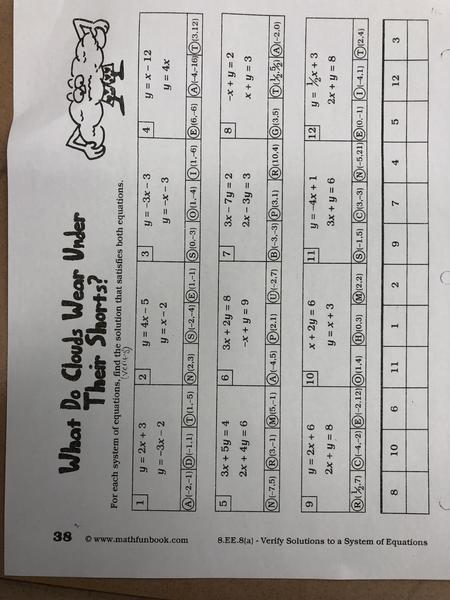 What Do Clouds Wear Under
Their Shorts?
For each system of equations, find the solution that satisfies both equations.
(verify)
1
y = 2x + 3
y = -3x - 2
2
y = 4x - 5
y = x - 2
3
y = -3x - 3
y = -x - 3
4
y = x - 12
y = 4x
A (-2,-1) D (-1,1) T (1,-5)
N (2,3) S (-2,-4) E (1,-1)
S (0,-3) O (1,-4) I (1,-6)
E (6,-6) A (-4,-16) T (3,12)
5
3x + 5y = 4
2x + 4y = 6
6
3x + 2y = 8
-x + y = 9
7
3x - 7y = 2
2x - 3y = 3
8
-x + y = 2
x + y = 3
N (-7,5) R (3,-1) M (5,-1)
A (-4,5) P (2,1) U (-2,7)
B (-3,-3) P (3,1) R (10,4)
G (3,5) T (½,5/2) A (-2,0)
9
y = 2x + 6
2x + y = 8
10
x + 2y = 6
y = x + 3
11
y = -4x + 1
3x + y = 6
12
y = ½x + 3
2x + y = 8
R (½,7) C (-4,-2) E (-2,12)
O (1,4) H (0,3) M (2,2)
S (-1,5) C (3,-3) N (-5,21)
E (0,-1) I (-4,1) T (2,4)
8 10 6 11 1 2 9 7 4 5 12 3
38
© www.mathfunbook.com
8.EE.8(a) - Verify Solutions to a System of Equations